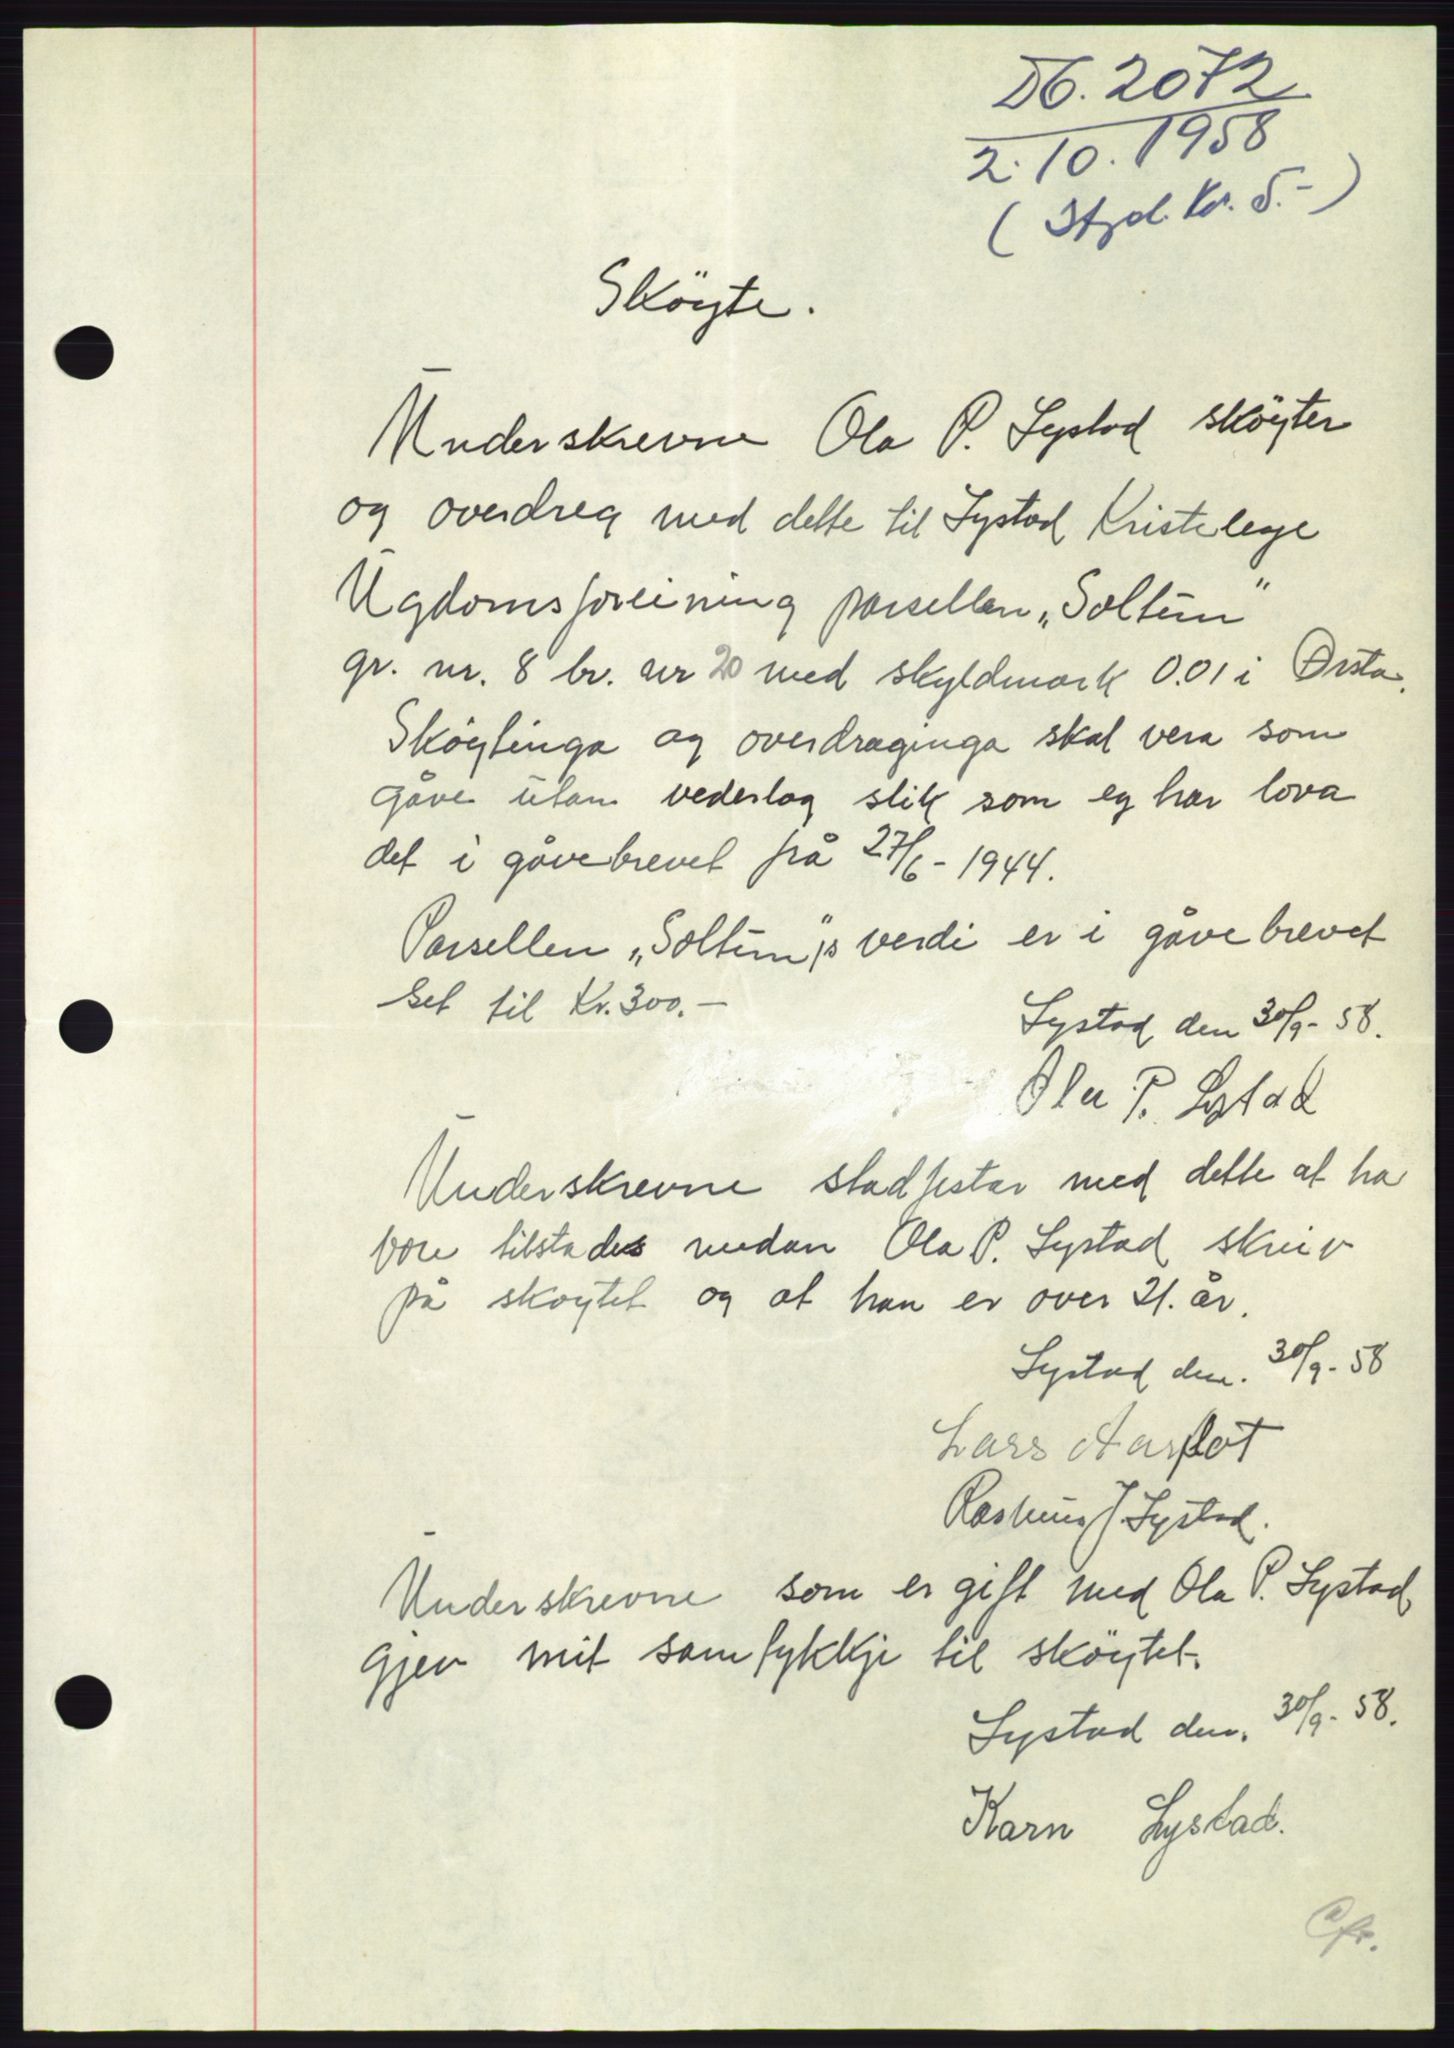 Db. 2072
2.10.1958
( Stpd. Kr. 5.- )
Sköyte.
Underskrevne Ola P. Systad sköyter
og overdreg med dette til Systad Kristelege
Ugdomsforeining parsellen „Soltun“
gr. nr. 8 br. nr 20 med skyldmark 0.01 i Ørsta.
Sköytinga og overdraginga skal vera som
gåve utan vederlag slik som eg har lova
det i gåvebrevet frå 27/6 - 1944.
Parsellen „Soltun“,s verdi er i gåvebrevet
set til Kr. 300.-
Systad den 30/9 - 58.
Ola P. Systad
Underskrevne stadfestar med dette at ha
vore tilstades medan Ola P. Systad skreiv
på skoytet og at han er over 21. år.
Systad den. 30/9 - 58
Lars Aarflot
Rasmus J. Systad.
Underskrevne som er gift med Ola P. Systad
gjev mit samtykkje til sköytet.
Systad den. 30/9 - 58.
Karn Systad.